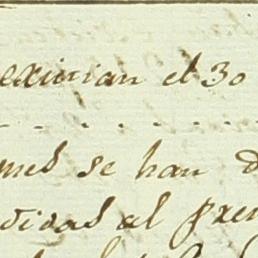 eximian el 30
mes se han d
didas al pre